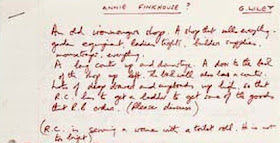 ANNIE FINKHOUSE ? G. WILEY
An old ironmongers shop. A shop that sells everything.
garden equipment, ladies tights, builders supplies,
mousetraps, everything.
A long counter up and downstage. A door to the back
of the shop up left. The back wall also has a counter.
Lots of deep drawers and cupboards up high, so that
R.C. has to get a ladder to get some of the goods
that R.B. orders. (Please discuss)
(R.C. is serving a woman with a toilet roll. He is not
too bright)